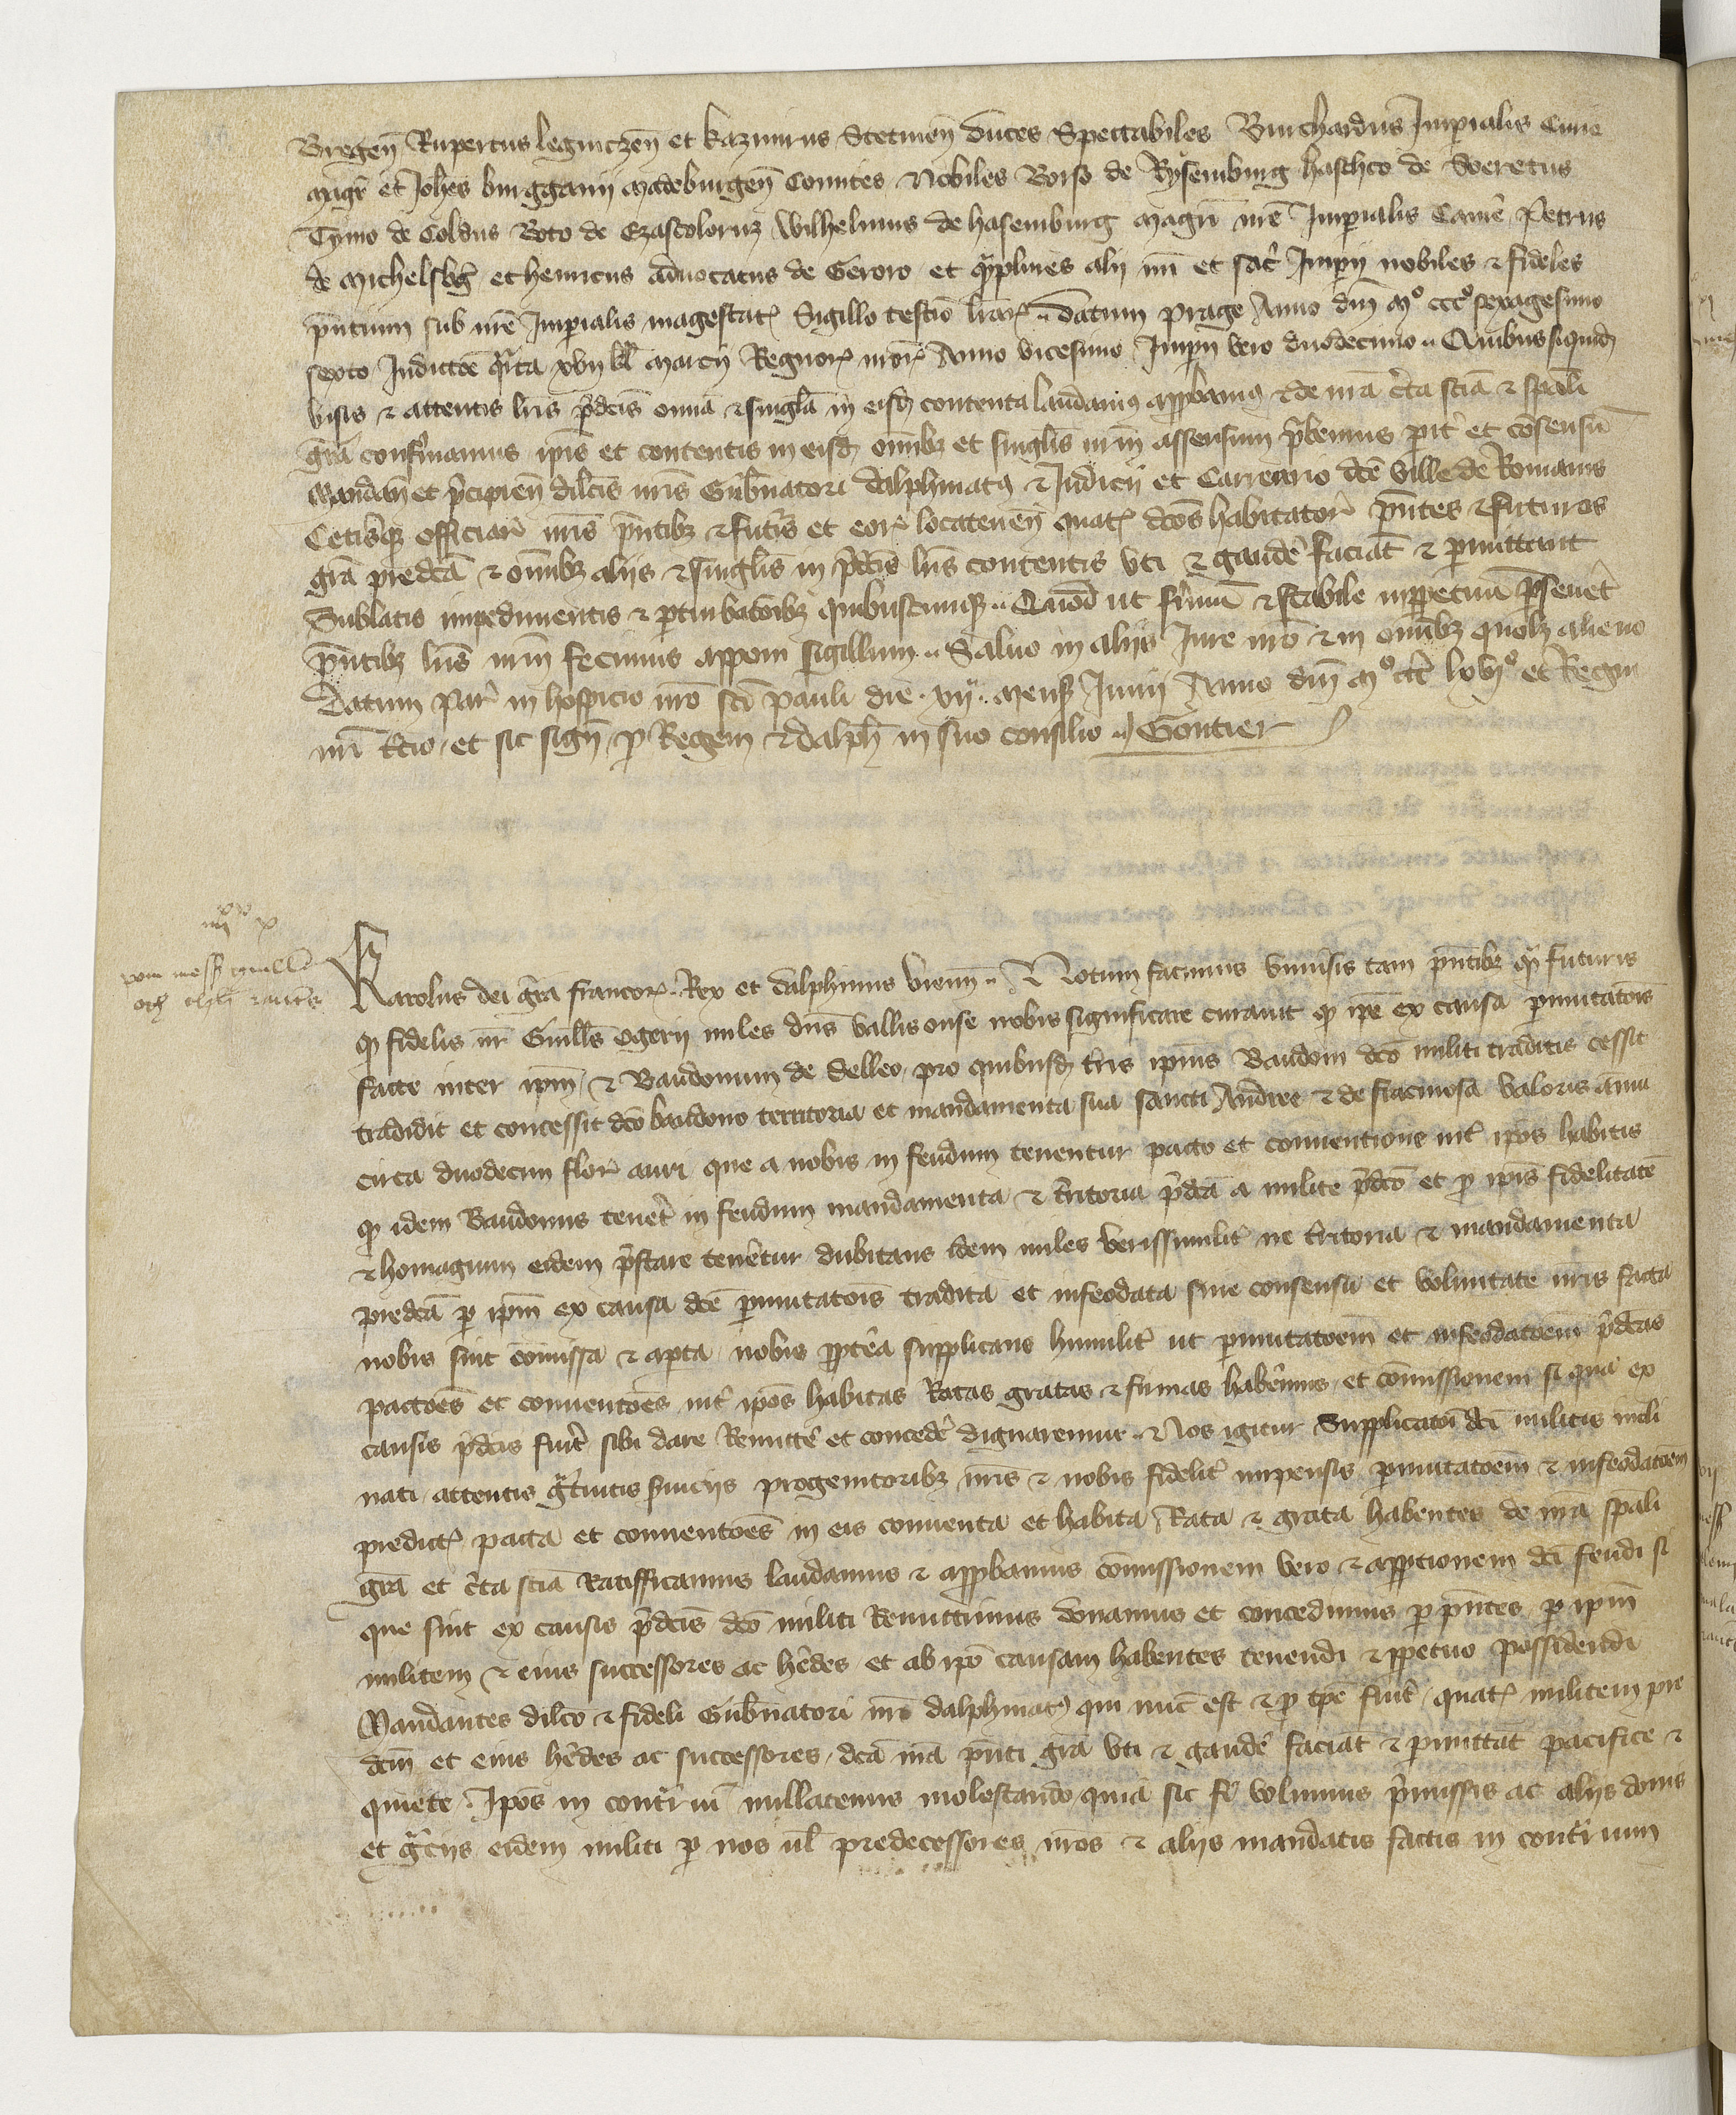 Bregen̄ Rupertus legniczen̄ et kazimirus Stetinen̄ duces Spectabiles Burchardus Imperialis Curie
magr̄ et Joh̄es burggravii madeburgen̄ Comites Nobiles Borso de Rysemburg haschco de Sweretus
Tymo de Coldus Boto de Czastolorutz Wilhelmus de hasemburg magr̄i nr̄e Imperialis Cam̄e Petrus
de michelsbḡ et henricus advocatus de Gerow et q̄mplures alij nr̄i et sac̄ Imperij nobiles & fideles
pn̄tium sub nr̄e Imperialis magestatꝭ Sigillo testiō lr̄arꝝ .. Datum prage Anno dn̄i mº cccº sexagesimo
sexto Indictōe q̄rta xvij kl̄ marcij Regnorꝝ nr̄orꝝ Anno vicesimo Imperij vero duodecimo .. Quibus siquidꝫ
visis & attentis lrīs p̄dcīs omnia & singl̄a in eisdꝫ contenta laudamꝰ approbamꝰ & de nr̄a c̄ta sciā & spāli
gr̄a confirmamus ip̄is et contentis in eisdꝫ om̄ibꝫ et singl̄is nr̄m assensum p̄bemus parit̄ et cōsensū
Mandan̄ et p̄cipien̄ dilc̄is nr̄is Gub̄natori dalphinatꝰ & Judicij et Correario dc̄e ville de Romanis
Cet̄isqꝫ officiar̄ nr̄is pn̄tibꝫ & futur̄is et eorꝝ locatenen̄ quatꝭ dc̄os habitator̄ pn̄tes & futuros
gr̄a predc̄a & om̄ibꝫ alijs & singl̄is in p̄dc̄is lr̄is contentis uti & gaudē faciāt & permittant
Sublatis impedimentis & pertinbatōibꝫ quibuscumqꝫ .. Quod ut firmū & stabile imperpetuū p̄seuēt
pn̄tibꝫ lr̄is nr̄m fecimus apponi sigillum .. Saluo in alijs Jure nr̄o & in om̄ibꝫ quolꝫ alieno
Datum par̄ in hospicio nr̄o scī pauli die .xij. mensꝭ Junij Anno dn̄i mº ccc̄ lxvjº et Regni
nr̄i t̄cio et sic sign̄ ꝑ Regem & dalph̄ in suo consilio ..| Gontier
Karolus dei gr̄a francorꝝ Rex et dalphinus vienn̄ .. Notum facimus univ̄sis tam pn̄tibꝫ q̄ futuris
qꝫ fidelis nr̄ Guill̄s ogerij miles dn̄s vallis onse nobis significare curavit qꝫ ip̄e ex causa pmutatōis
facte inter ip̄m & Baudonum de delleo pro quibusdꝫ t̄ris ip̄ius Baudoni dc̄o militi traditis cessit
tradidit et concessit dc̄o baudono territoria et mandamenta sua sancti Andree & de fracinosa valoris ānui
circa duodecim flor̄ auri que a nobis in feudum tenentur pacto et conventione int̄ ip̄os habitis
qꝫ idem Baudonus tenēt in feudum mandamenta & t̄ritoria p̄dc̄a a milite p̄dc̄o et ꝓ ip̄is fidelitatē
& homagium eidem p̄stare tenētur dubitans idem miles verissimilit̄ ne t̄ritoria & mandamenta
predc̄a ꝑ ip̄m ex causa dc̄e pmutatōis tradita et infeodata sine consensu et voluntate nr̄is facta
nobis sint cōmissa & apta nobis ꝓpt̄ea supplicans humilit̄ ut pmutatōem et infeodatōem p̄dc̄as
pactōes et conventōes int̄ ip̄os habitas Ratas gratas & firmas habēmus et cōmissionem si qua ex
causis p̄dc̄is fuit̄ sibi dare Remittē et concedē dignaremur .. Nos igitur Supplicatōi dc̄i militis incli
nati attentis gr̄tuitis sviciys progenitoribꝫ nr̄is & nobis fidelit̄ impensis pmutatōem & infeodatōem
predictꝭ pacta et conventōes in eis conventa et habita Rata & grata habentes de nr̄a spāli
gr̄a et c̄ta sciā Ratifficamus laudamus & approbamus cōmissionem vero & appitionem dc̄i feudi si
que sint ex causis p̄dc̄is dc̄o militi Remittimus donamus et concedimus ꝑ pn̄tes ꝑ ip̄m
militem & eius successores ac hēdes et ab ip̄o causam habentes tenendi & ꝑpetuo possidendi
Mandantes dilc̄o & fideli Gub̄natori nr̄o dalphinatꝰ qui nūc est & ꝓ tp̄e fuit̄ quatꝭ militem pre
dc̄m et eius hēdes ac successores dc̄a nr̄a pn̄ti gr̄a uti & gaudē faciāt & pmittāt pacifice &
quiete .. Ip̄os in contr̄iū nullatenus molestando quia sic fī volumus p̄missis ac alijs donis
et gr̄cijs eidem militi ꝑ nos vl̄ predecessores nr̄os & alijs mandatis factis in contr̄ium